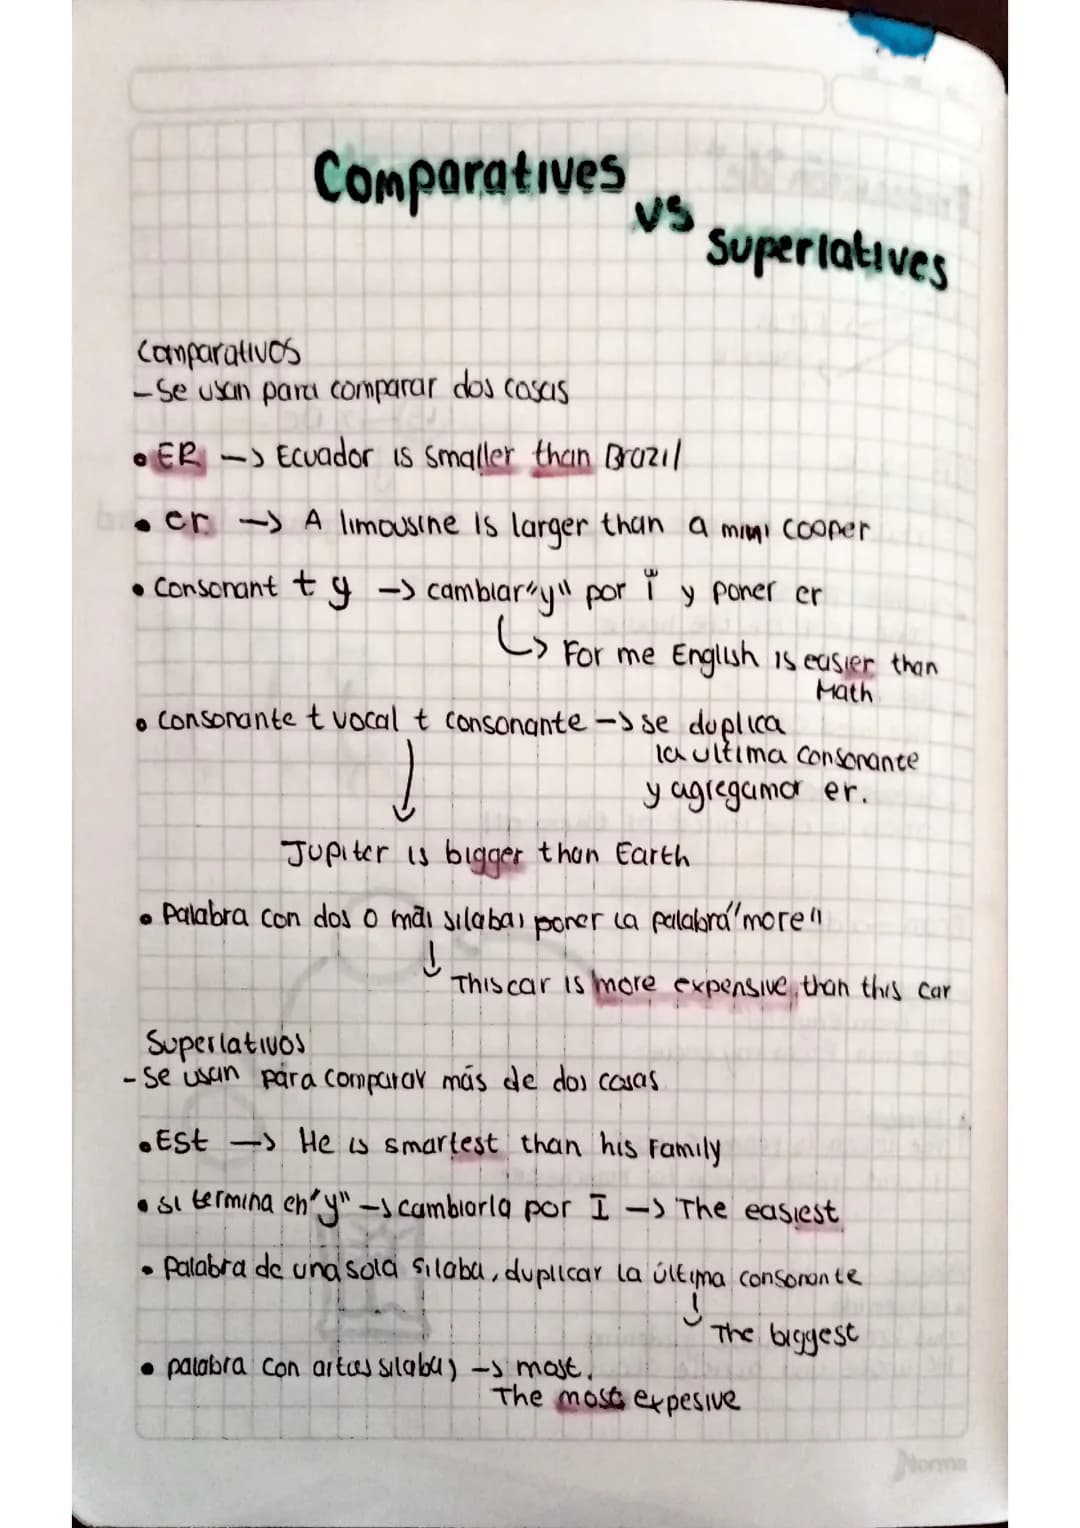 Comparatives
vs
Superlatives
Comparativos
- Se usan para comparar dos cosas
• ER -> Ecuador is smaller than Brazil
• er -> A limousine is larger than a mini cooper
• Consonant + y -> cambiar "y" por i y poner er
-> For me English is easier than
Math
• Consonante + vocal + consonante -> se duplica
la ultima consonante
y agregamor er.
Jupiter is bigger than Earth
• Palabra con dos o más silabas poner la palabra "more"
This car is more expensive than this car
Superlativos
- Se usan para comparar más de dos cosas
• Est -> He is smartest than his Family
• Si termina en "y" -> cambiarla por I -> The easiest
• Palabra de una sola silaba, duplicar la última consonante
The biggest
• palabra con artas silabas -> most.
The most expesive
Norma